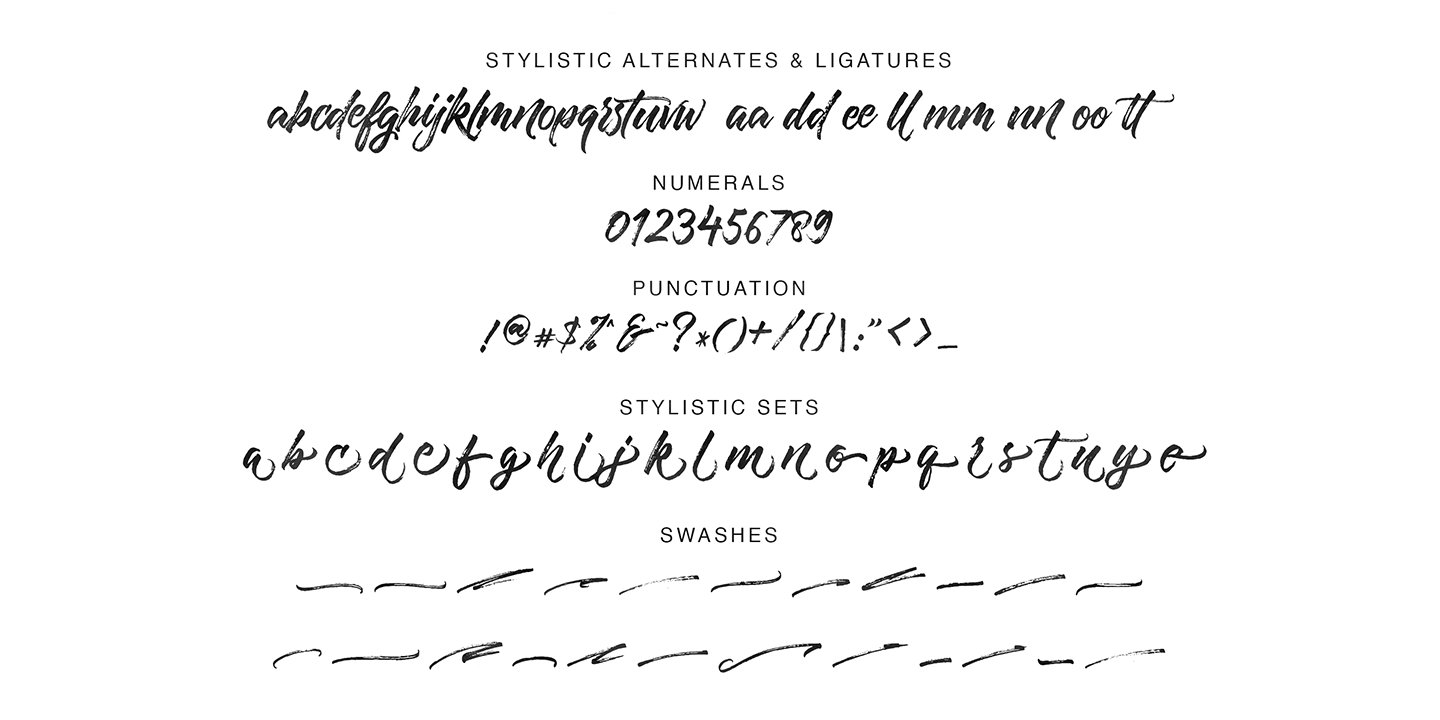 STYLISTIC ALTERNATES & LIGATURES
abcdefghijklmnopqrstuvw aa dd ee ll mm nn oo tt
NUMERALS
0123456789
PUNCTUATION
!@#$%^&~?*()+/{}\:"<>_
STYLISTIC SETS
abcdefghijklmnopqrstuyo
SWASHES